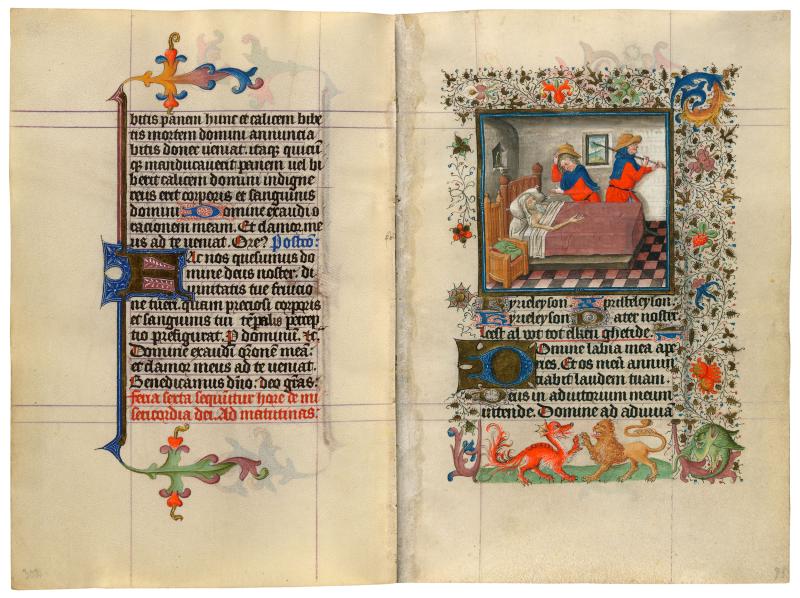 bitis panem hunc et calicem bibe
tis mortem domini annuncia
bitis donec veniat. itaq; quicu̅
q; manducaverit panem vel bi
berit calicem domini indigne
reus erit corporis et sanguinis
domini Domine exaudi o
rationem meam. Et clamor me
us ad te veniat. Ore? Postco̅:
Fac nos quesumus do
mine deus noster. di
vinitatis tue fruitio
ne fueri. quam preciosi corporis
et sanguinis tui te̅palis percep
tio prefigurat. P dominu̅. &c.
Domine exaudi or̅one̅ mea̅:
et clamor meus ad te veniat.
Benedicamus d̅n̅o: deo gr̅as:
feria sexta sequu̅tur hore de mi
sericordia dei. Ad matutinas:
Kyrieleyson Xpristeleyson
Kyrieleyson Pater noster
Leest al wt tot elken ghetide.
Domine labia mea ape
ries. Et os meu̅ annun
ciabit laudem tuam
Deus in adiutorium meum
intende. Domine ad adiuva